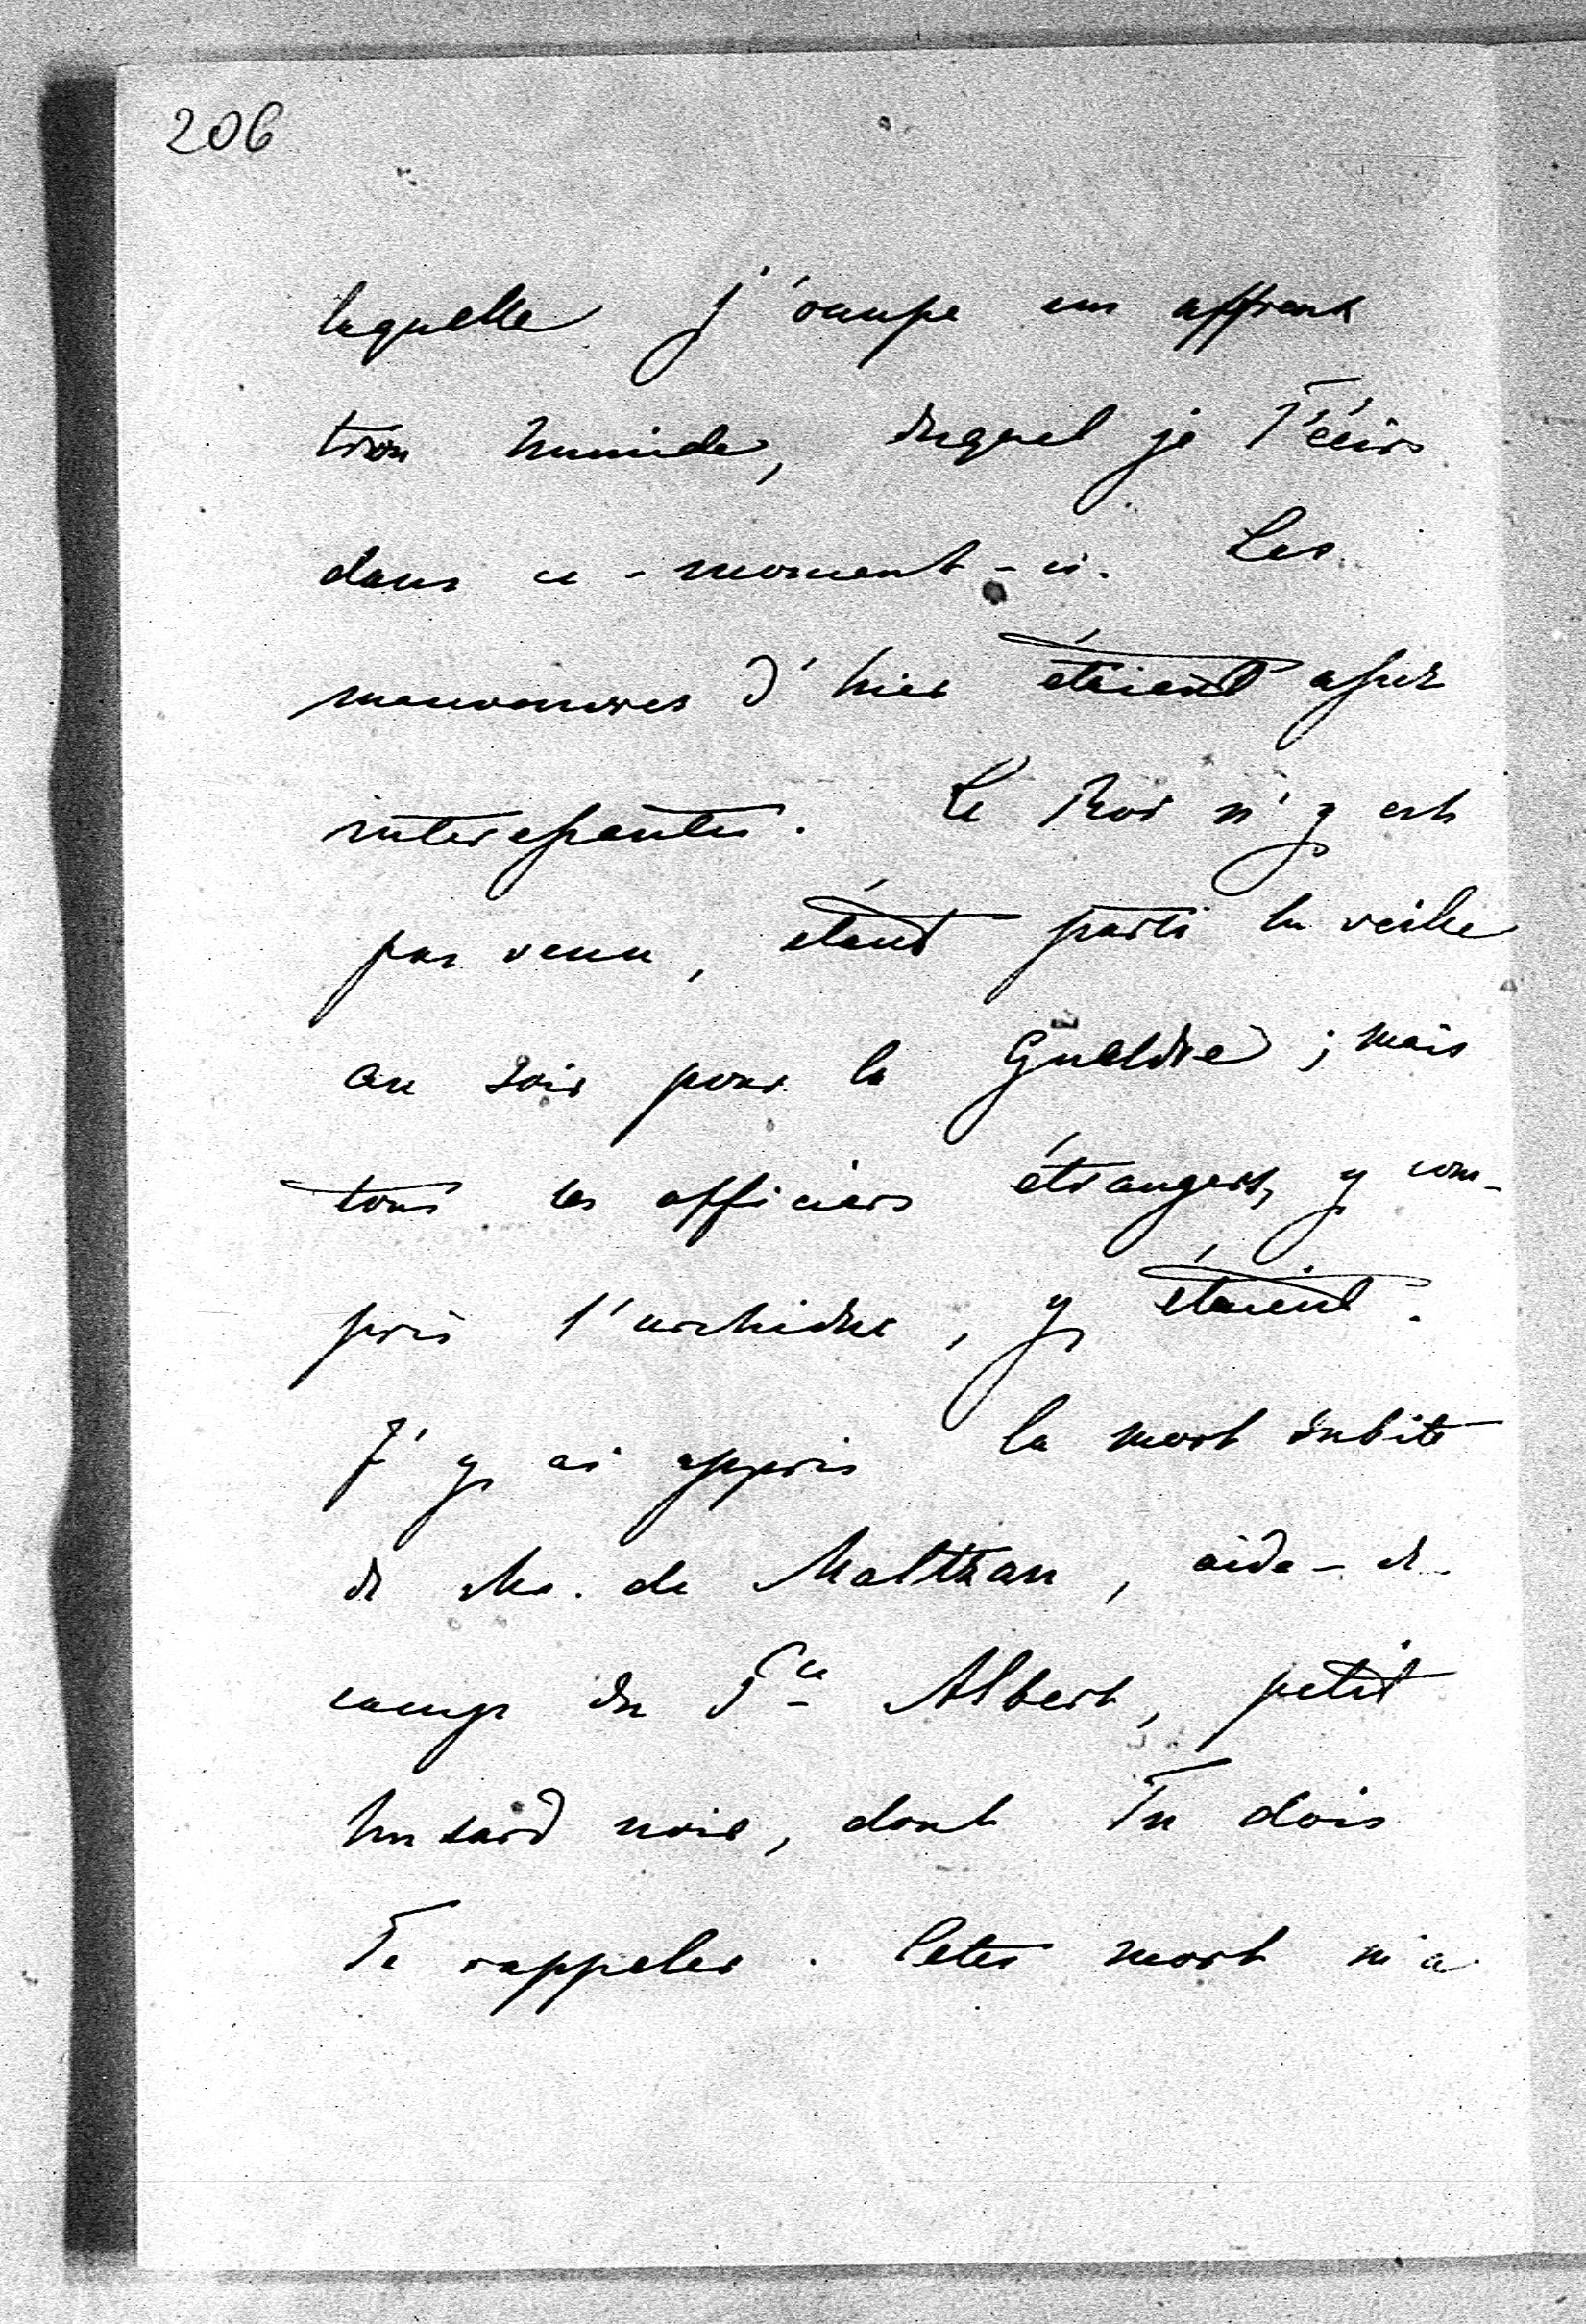 206
laquelle j'occupe un affreux
trou humide, duquel je T'écris
dans ce-moment-ci. Les
manoeuvres d'hier étaient assez
interessantes. Le Roi n'y est
pas venu, étant parti la veille
au soir pour la Gueldre ; mais
tous les officiers étrangers, y com-
pris l'archiduc, y étaient.
J'y ai appris la mort subite
de Mr. de Maltzan, aide-de-
camp du Pce Albert, petit
husard noir, dont Tu dois
Te rappeler. Cette mort m'a